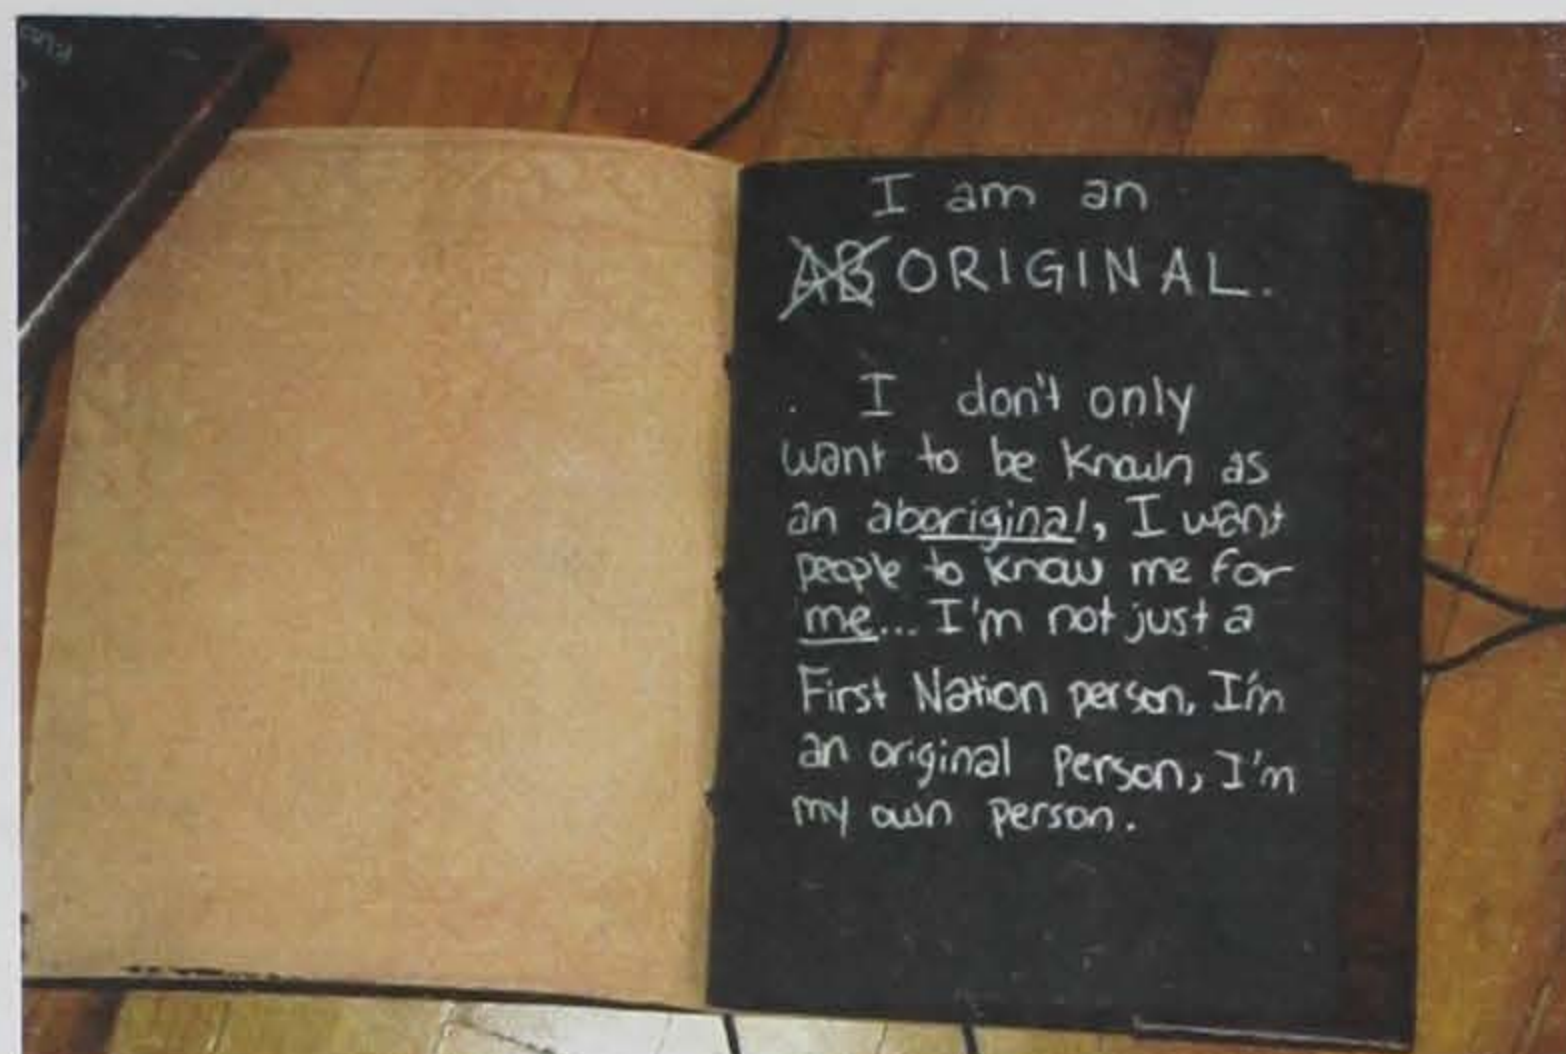 I am an
ABORIGINAL.
I don't only
want to be known as
an aboriginal, I want
people to know me for
me... I'm not just a
First Nation person, I'm
an original person, I'm
my own person.